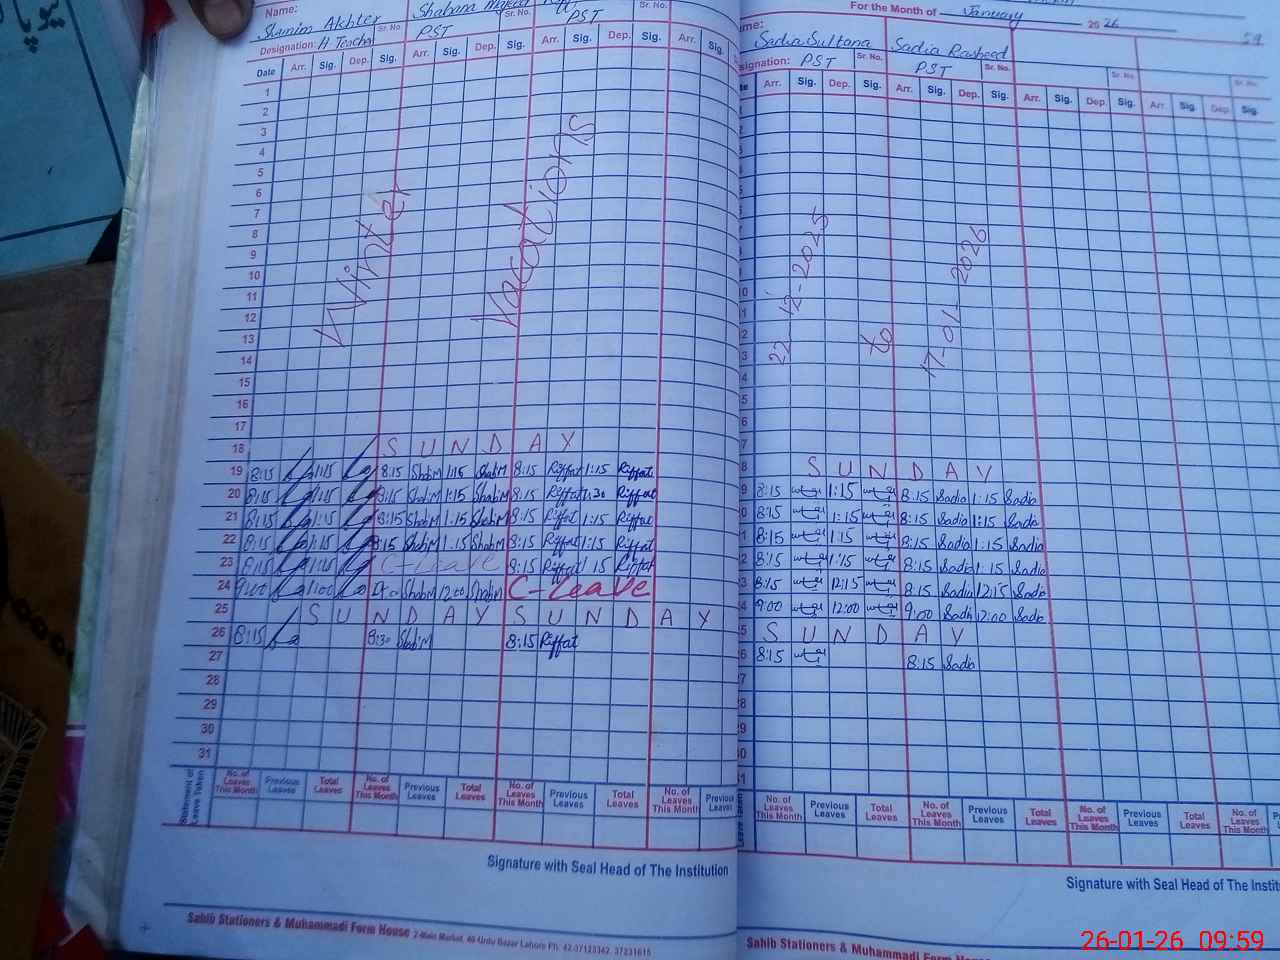 Name:
Shamim Akhter
Sr. No.
Shabnam Majeed
Sr. No.
PST
Sr. No.
Designation: H Teacher
PST
Date Arr. Sig. Dep. Sig. Arr. Sig. Dep. Sig. Arr. Sig. Dep. Sig. Arr. Sig.
1
2
3
4
5
6
7
8
9
10
11
12
13
14
15
16
17
Winter Vacations
18 SUNDAY
19 8:15 1:15 8:15 Shabim 1:15 Shabim 8:15 Riffat 1:15 Riffat
20 8:15 1:15 8:15 Shabim 1:15 Shabim 8:15 Riffat 1:30 Riffat
21 8:15 1:15 8:15 Shabim 1:15 Shabim 8:15 Riffat 1:15 Riffat
22 8:15 1:15 8:15 Shabim 1:15 Shabim 8:15 Riffat 1:15 Riffat
23 8:15 1:15 C-Leave 8:15 Riffat 1:15 Riffat
24 9:00 1:00 Shabim 12:00 Shabim C-Leave
25 SUNDAY SUNDAY
26 8:15 8:30 Shabim 8:15 Riffat
27
28
29
30
31
Statement of Leave Taken
No. of Leaves This Month Previous Leaves Total Leaves No. of Leaves This Month Previous Leaves Total Leaves No. of Leaves This Month Previous Leaves Total Leaves No. of Leaves This Month Previous Leaves
Signature with Seal Head of The Institution
Sahib Stationers & Muhammadi Form House 2-Main Market, 40-Urdu Bazar Lahore Ph. 42-37123342, 37231615
For the Month of January 2026
59
Sadia Sultana
Sr. No.
Sadia Rasheed
Sr. No.
Sr. No.
Sr. No.
PST
PST
Arr. Sig. Dep. Sig. Arr. Sig. Dep. Sig. Arr. Sig. Dep. Sig. Arr. Sig. Dep. Sig.
22-12-2025 to 17-01-2026
SUNDAY
8:15 1:15 8:15 Sadia 1:15 Sadia
8:15 1:15 8:15 Sadia 1:15 Sadia
8:15 1:15 8:15 Sadia 1:15 Sadia
8:15 1:15 8:15 Sadia 1:15 Sadia
8:15 12:15 8:15 Sadia 12:15 Sadia
9:00 12:00 9:00 Sadia 12:00 Sadia
SUNDAY
8:15 8:15 Sadia
No. of Leaves This Month Previous Leaves Total Leaves No. of Leaves This Month Previous Leaves Total Leaves No. of Leaves This Month Previous Leaves Total Leaves No. of Leaves This Month
Signature with Seal Head of The
Sahib Stationers & Muhammadi Form House
26-01-26 09:59